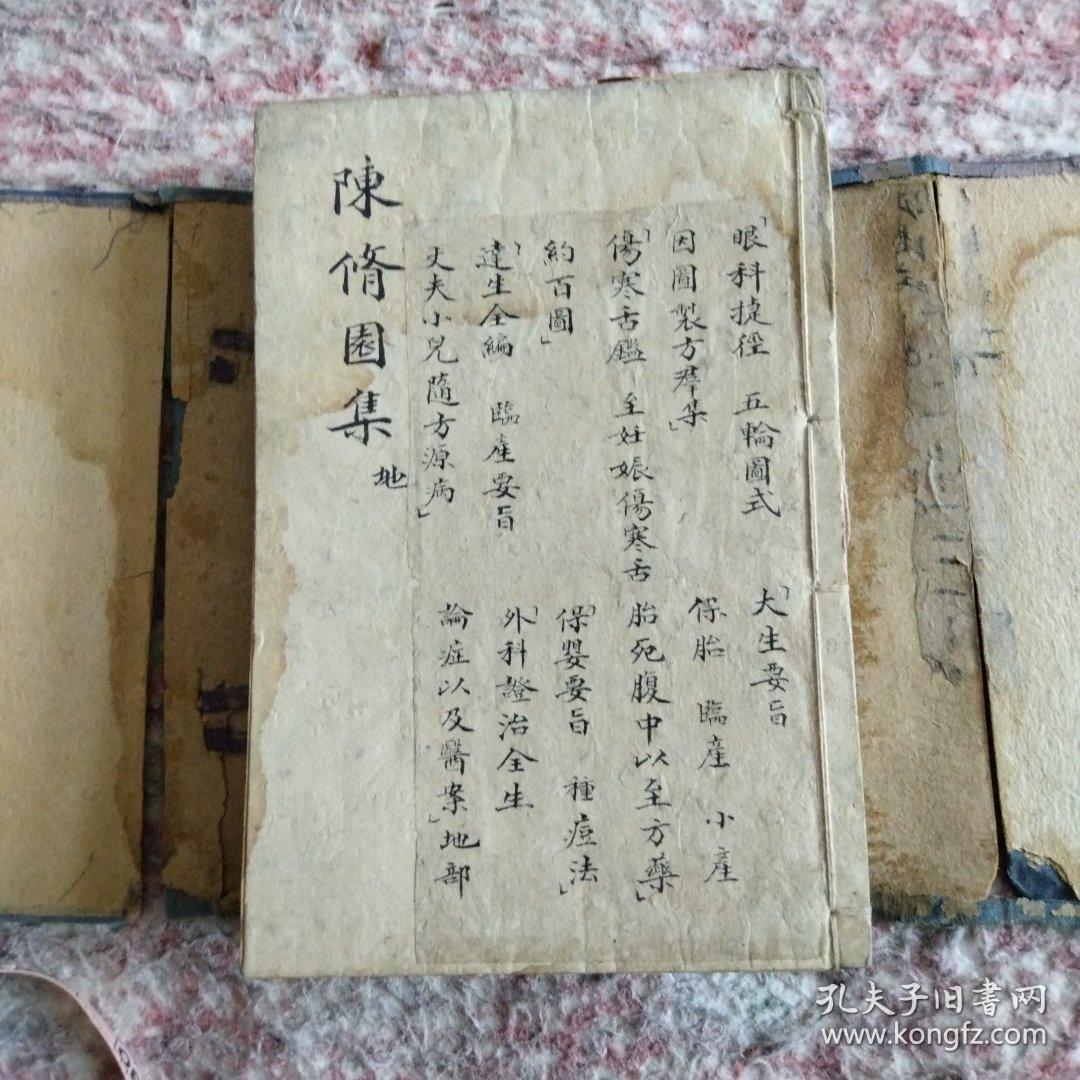 陳脩園集 地
「眼科捷徑 五輪圖式
因圖製方群集」
「傷寒舌鑑 至妊娠傷寒舌
約百圖」
「達生全編 臨産要旨
丈夫小兒隨方源病」
「大生要旨
保胎 臨産 小産
胎死腹中以至方藥」
「保嬰要旨 種痘法」
「外科證治全生
論症以及醫案」地部
孔夫子旧书网
www.kongfz.com